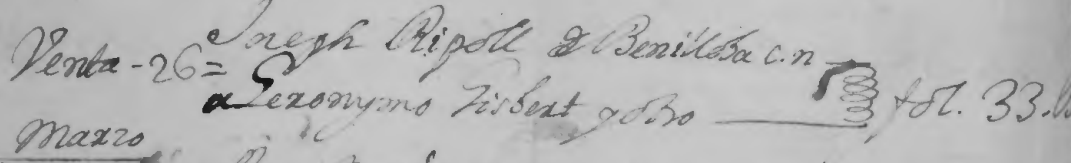 Venta - 26 = Joseph Ripoll de Benilloba c.n
a Geronymo Gisbert y otro fol. 33.
Marzo